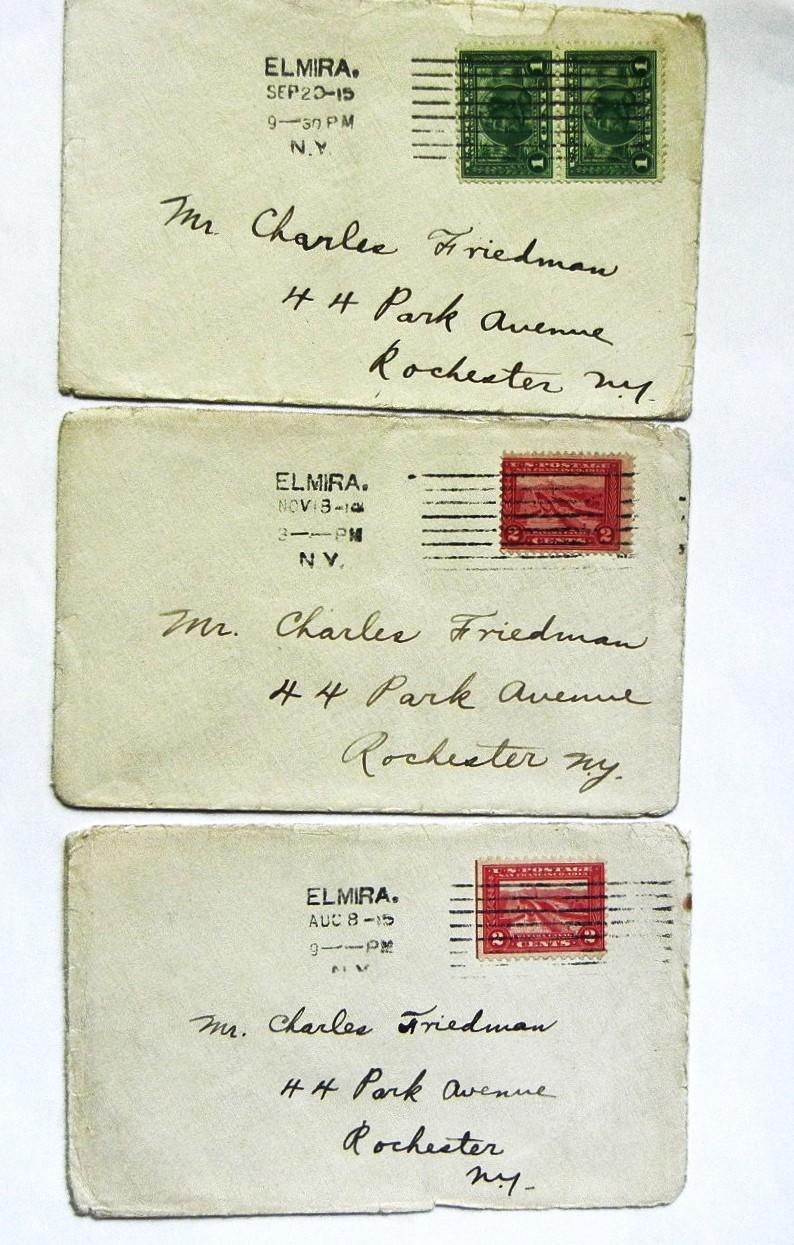 ELMIRA.
SEP 20-15
9—30 PM
N.Y.
1 1
1 1
Mr. Charles Friedman
44 Park Avenue
Rochester N.Y.
ELMIRA.
NOV 18-14
PM
N.Y.
U.S. POSTAGE
2 CENTS 2
Mr. Charles Friedman
44 Park Avenue
Rochester N.Y.
ELMIRA.
AUG 8-15
9— —PM
N.Y.
U.S. POSTAGE
SAN FRANCISCO 1915
2 CENTS 2
Mr. Charles Friedman
44 Park Avenue
Rochester
N.Y.